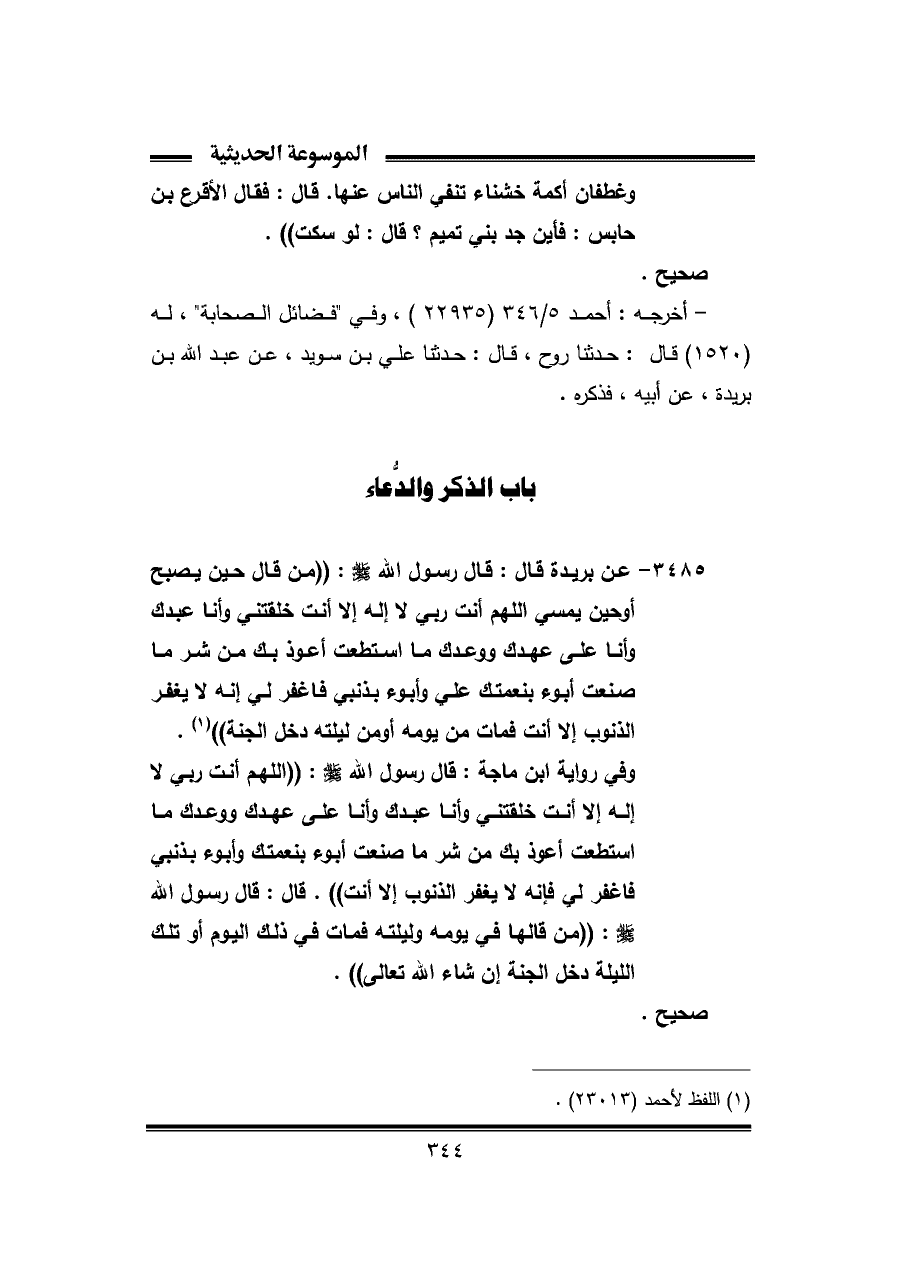 الموسوعة الحديثية
وغطفان أكمة خشناء تنفي الناس عنها. قال : فقال الأقرع بن
حابس : فأين جد بني تميم ؟ قال : لو سكت)) .
صحيح .
- أخرجه : أحمد ٣٤٦/٥ (٢٢٩٣٥ ) ، وفي "فضائل الصحابة" ، له
(١٥٢٠) قال : حدثنا روح ، قال : حدثنا علي بن سويد ، عن عبد الله بن
بريدة ، عن أبيه ، فذكره .
باب الذكر والدُّعاء
٣٤٨٥- عن بريدة قال : قال رسول الله ﷺ : ((من قال حين يصبح
أوحين يمسي اللهم أنت ربي لا إله إلا أنت خلقتني وأنا عبدك
وأنا على عهدك ووعدك ما استطعت أعوذ بك من شر ما
صنعت أبوء بنعمتك علي وأبوء بذنبي فاغفر لي إنه لا يغفر
الذنوب إلا أنت فمات من يومه أومن ليلته دخل الجنة))(١) .
وفي رواية ابن ماجة : قال رسول الله ﷺ : ((اللهم أنت ربي لا
إله إلا أنت خلقتني وأنا عبدك وأنا على عهدك ووعدك ما
استطعت أعوذ بك من شر ما صنعت أبوء بنعمتك وأبوء بذنبي
فاغفر لي فإنه لا يغفر الذنوب إلا أنت)) . قال : قال رسول الله
ﷺ : ((من قالها في يومه وليلته فمات في ذلك اليوم أو تلك
الليلة دخل الجنة إن شاء الله تعالى)) .
صحيح .
(١) اللفظ لأحمد (٢٣٠١٣) .
٣٤٤